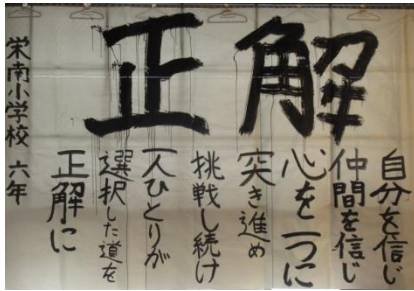 正解
自分を信じ
仲間を信じ
心を一つに
突き進め
挑戦し続け
一人ひとりが
選択した道を
正解に
栄南小学校 六年